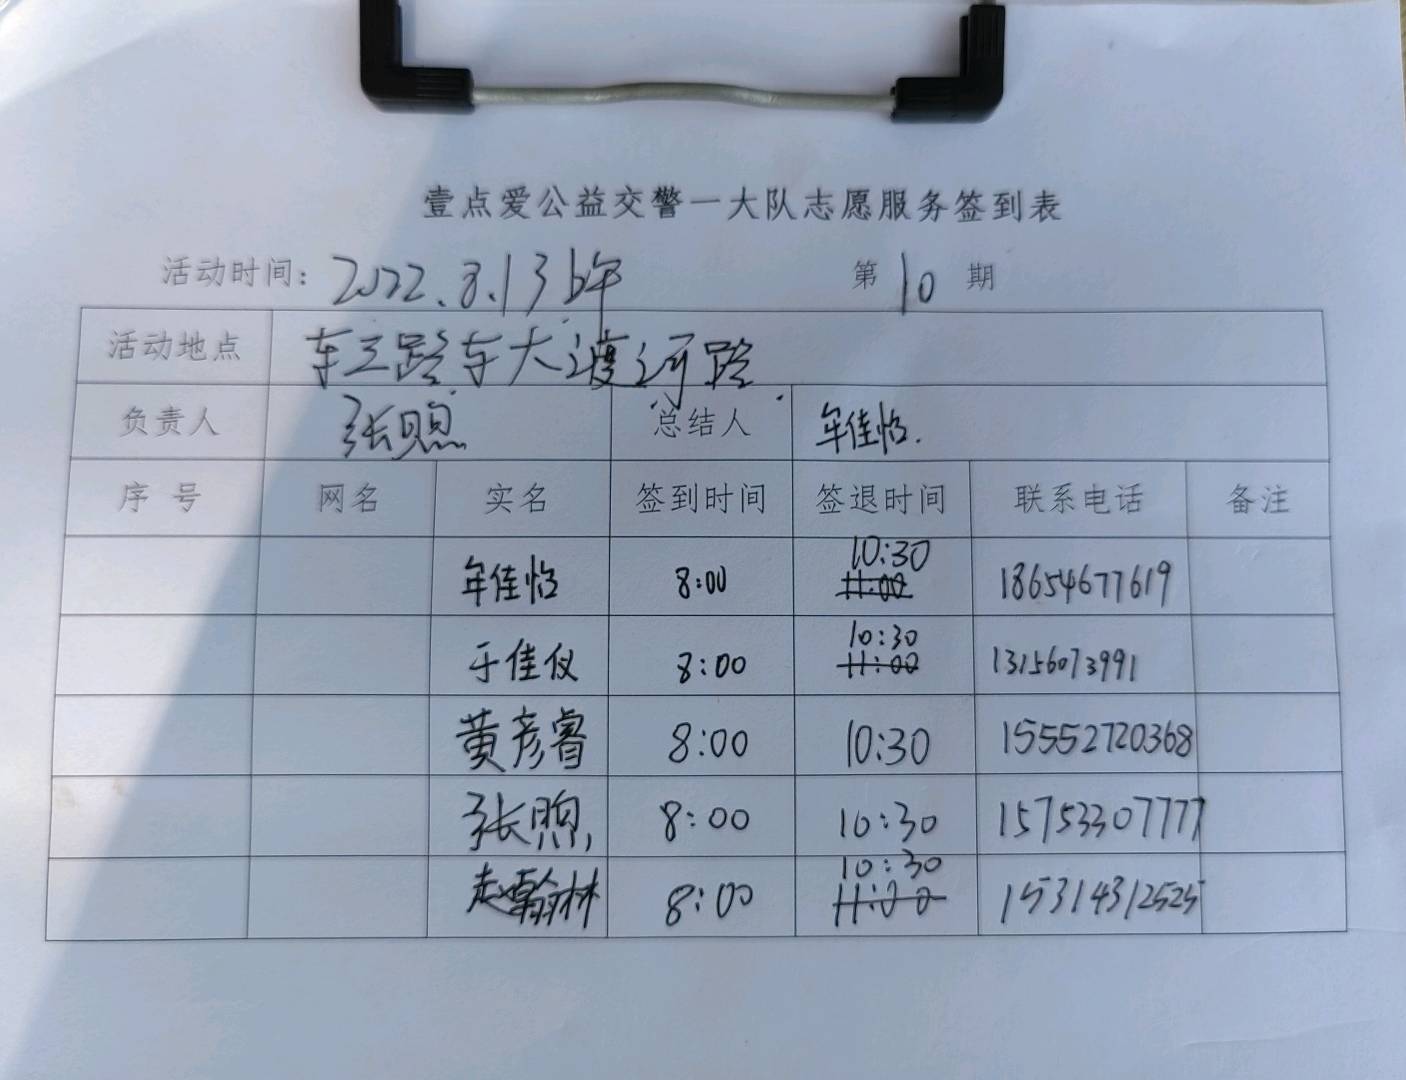 壹点爱公益交警一大队志愿服务签到表
活动时间：2022.8.13上午 第10期
活动地点 东三路东大渡河路
负责人 张煦 总结人 牟佳怡.
序号 网名 实名 签到时间 签退时间 联系电话 备注
牟佳怡 8:00 10:30 11:00 18654677619
于佳仪 8:00 10:30 11:00 13156073991
黄彦睿 8:00 10:30 15552720368
张煦 8:00 10:30 15753307777
赵翰林 8:00 10:30 11:00 15314312525